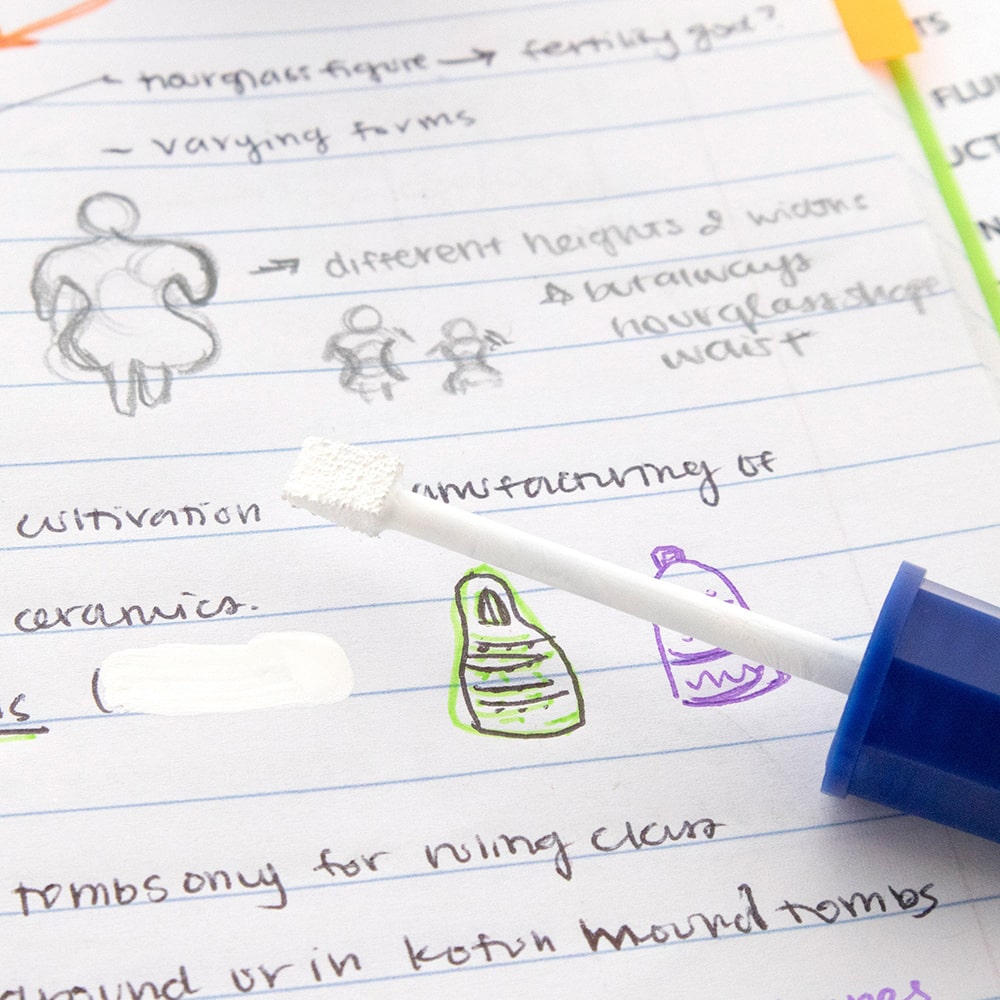 - hourglass figure → fertility god?
- varying forms
→ different heights & widths
☆ but always
hourglass shape
waist
cultivation manufacturing of
ceramics.
(
tombs only for ruling class
around or in kofun mound tombs
TS
FLUI
UCT
N